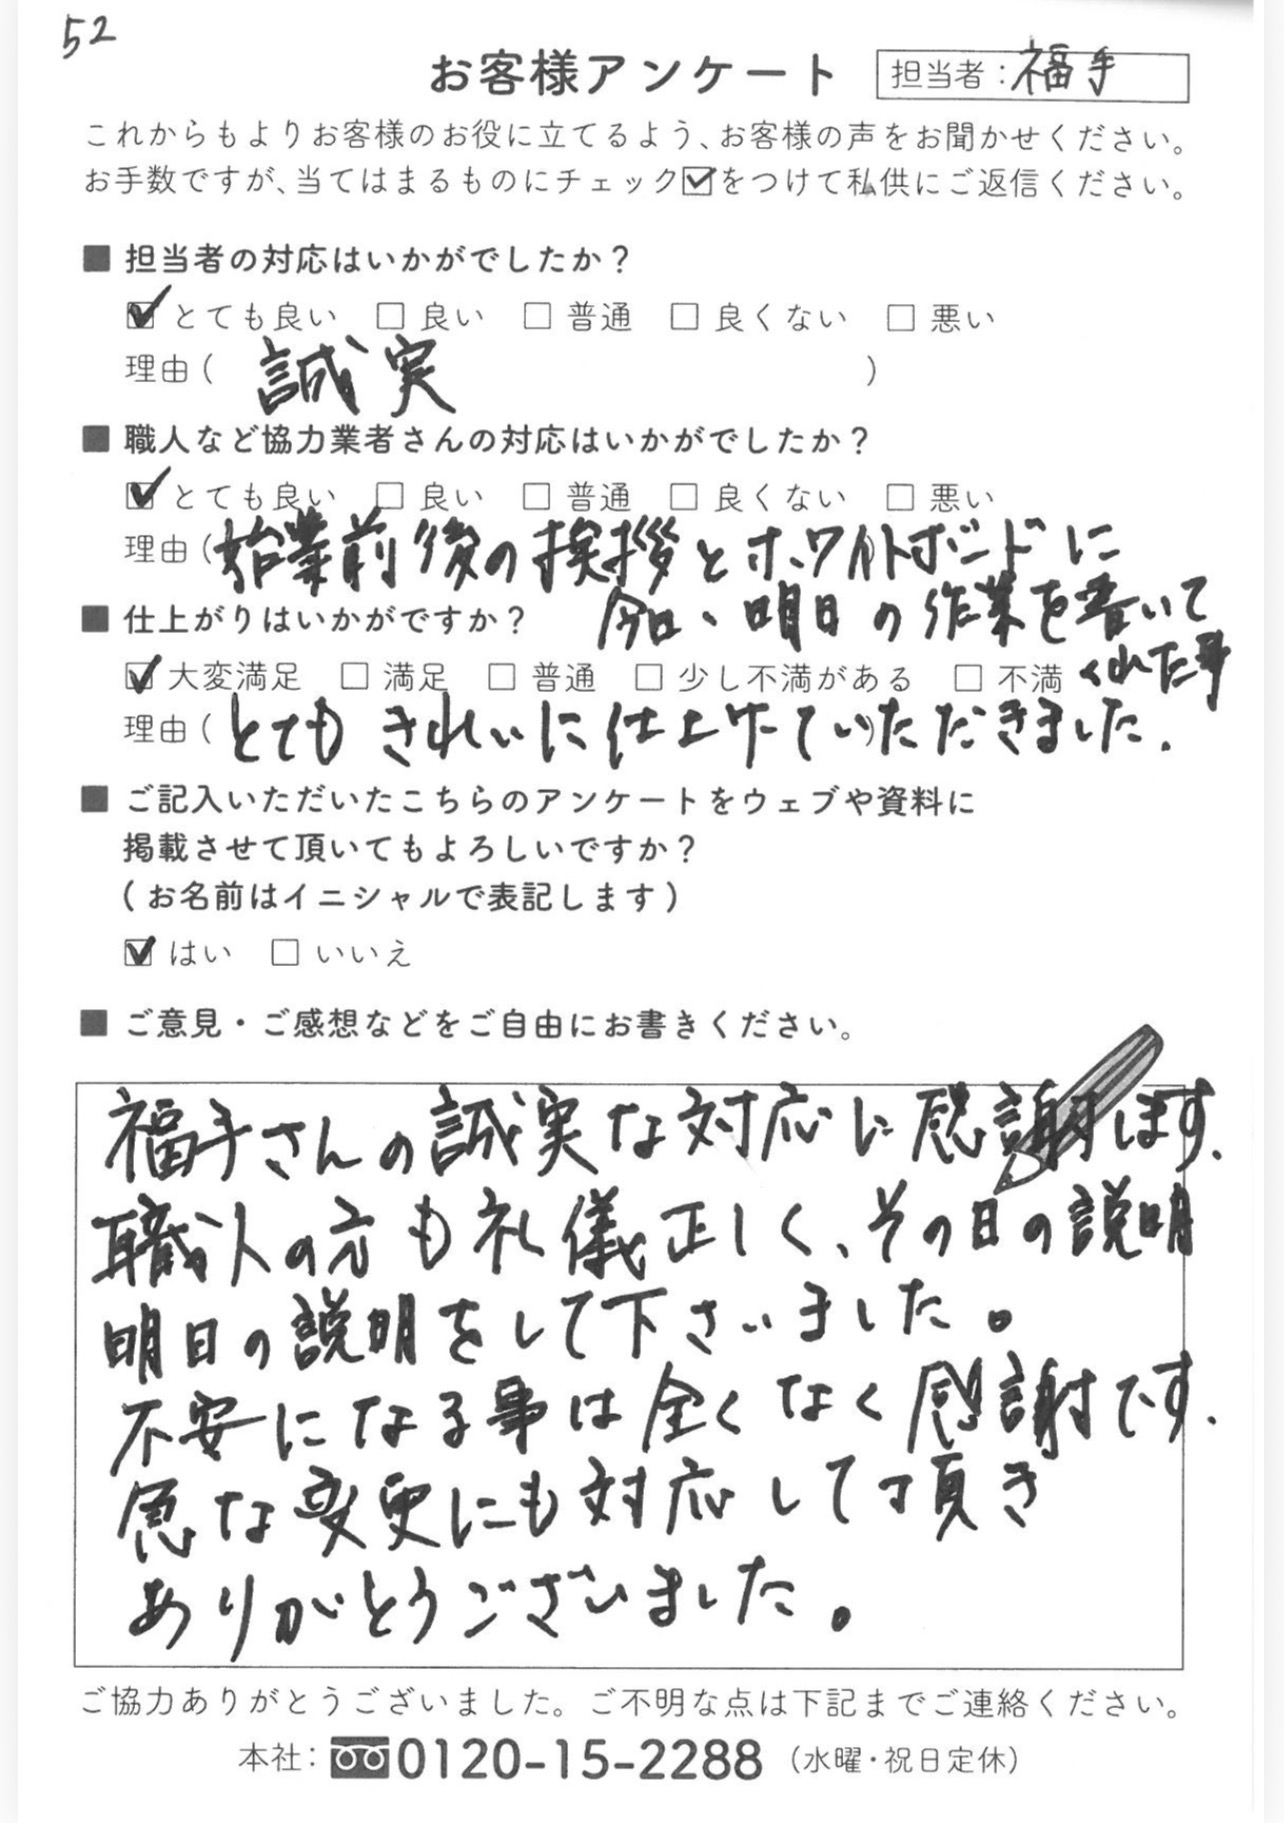 52
お客様アンケート
担当者：福手
これからもよりお客様のお役に立てるよう、お客様の声をお聞かせください。
お手数ですが、当てはまるものにチェック☑をつけて私供にご返信ください。
■ 担当者の対応はいかがでしたか？
☑ とても良い □ 良い □ 普通 □ 良くない □ 悪い
理由（ 誠実 ）
■ 職人など協力業者さんの対応はいかがでしたか？
☑ とても良い □ 良い □ 普通 □ 良くない □ 悪い
理由（始業前後の挨拶とホワイトボードに
今日、明日の作業を書いて
くれた事
■ 仕上がりはいかがですか？
☑ 大変満足 □ 満足 □ 普通 □ 少し不満がある □ 不満
理由（とてもきれいに仕上げていただきました.
■ ご記入いただいたこちらのアンケートをウェブや資料に
掲載させて頂いてもよろしいですか？
（お名前はイニシャルで表記します）
☑ はい □ いいえ
■ ご意見・ご感想などをご自由にお書きください。
福手さんの誠実な対応に感謝します.
職人の方も礼儀正しく、その日の説明
明日の説明をして下さいました。
不安になる事は全くなく感謝です.
急な変更にも対応して頂き
ありがとうございました。
ご協力ありがとうございました。ご不明な点は下記までご連絡ください。
本社：0120-15-2288（水曜・祝日定休）